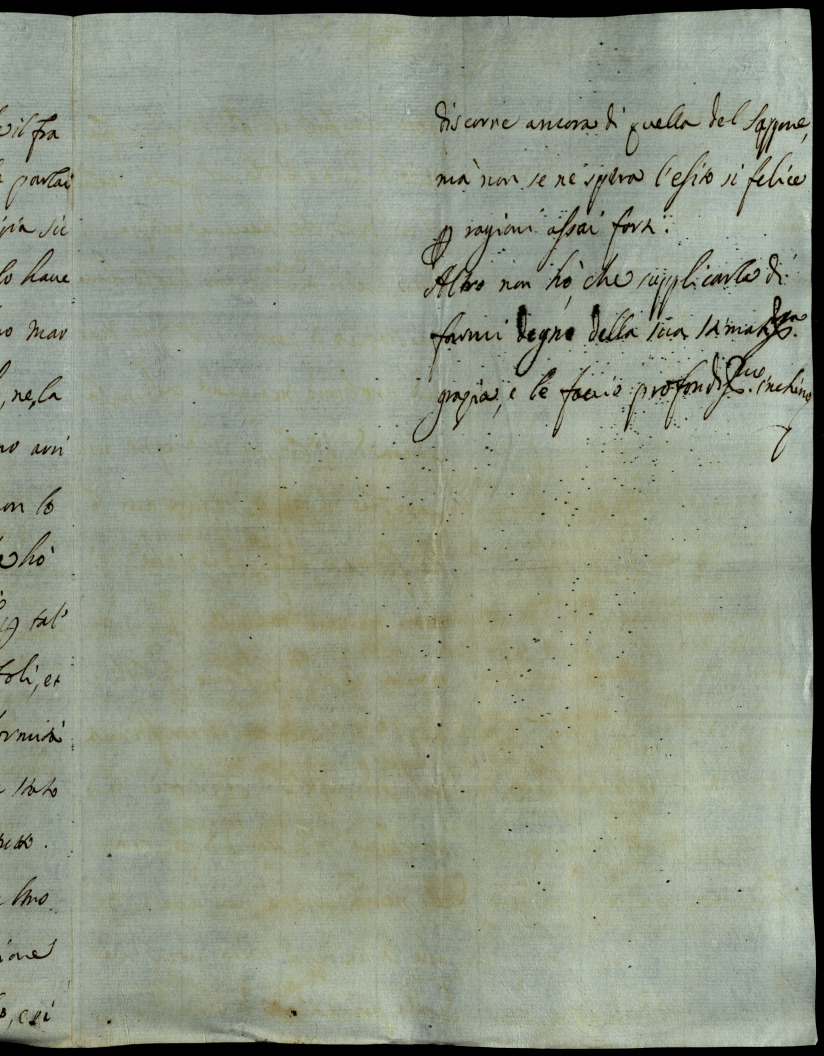 e il fra
partai
lo have
no mar
, ne, la
no avvi
on lo
e hò
tal'
oli, et
ormità
stato
ione
discorre ancora di quella del Sappone,
mà non se ne spera l'esito si felice
ꝑ ragioni assai forti.
Altro non hò, che supplicarla di
farmi degno della sua stimatma.
grazia, e le faccio profondismo. inchino